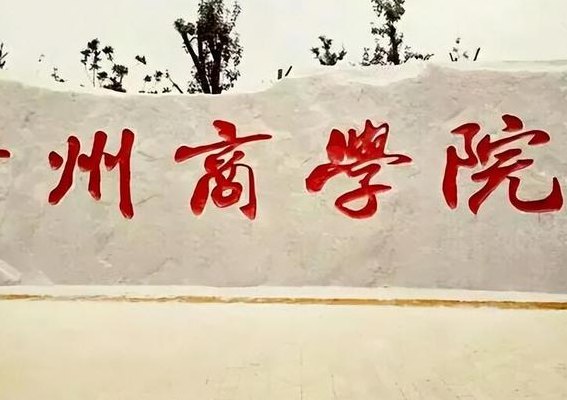 州商學院